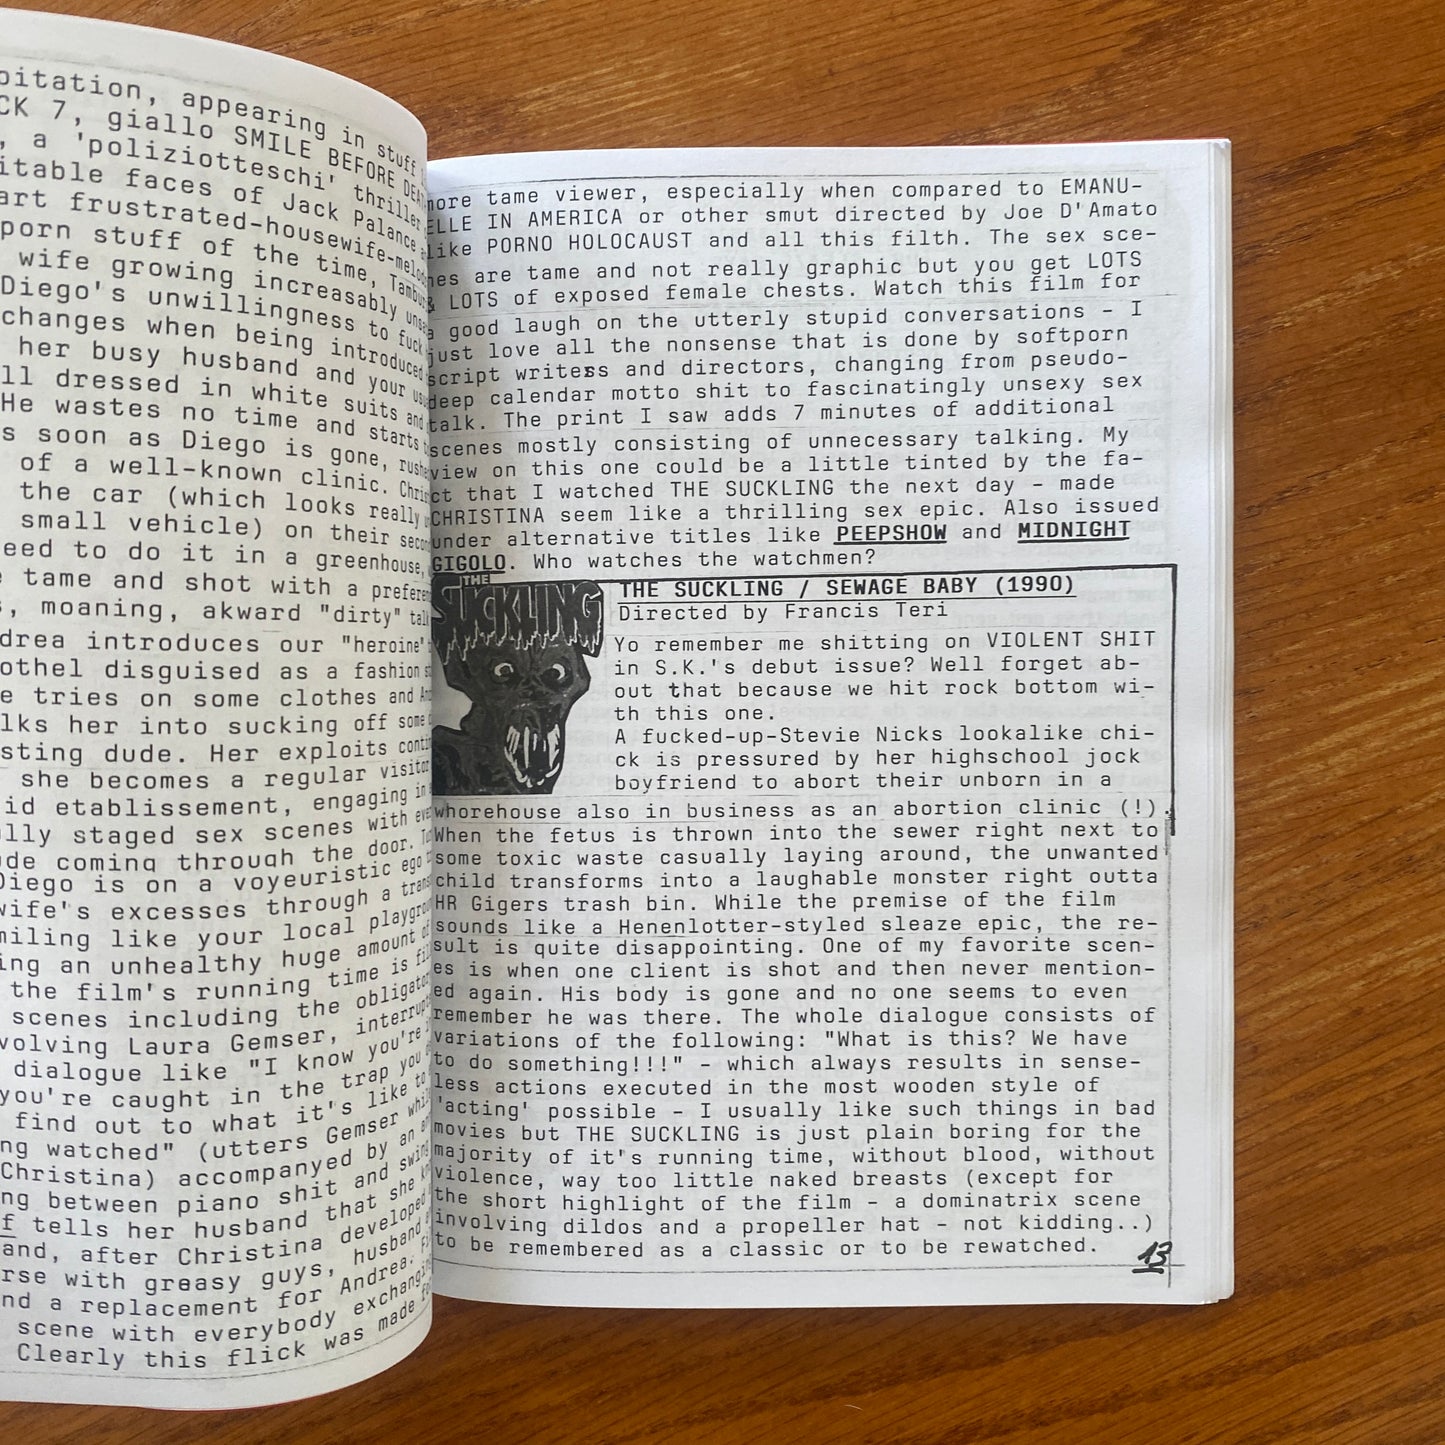 oitation, appearing in stuff
CK 7, giallo SMILE BEFORE DEATH
, a 'poliziotteschi' thriller
itable faces of Jack Palance
art frustrated-housewife-melod
porn stuff of the time, Tambur
wife growing increasably unsa
Diego's unwillingness to fuck
changes when being introduced
her busy husband and your usu
ll dressed in white suits and
He wastes no time and starts
s soon as Diego is gone, rushe
of a well-known clinic. Chris
the car (which looks really
small vehicle) on their secon
eed to do it in a greenhouse,
tame and shot with a preferen
s, moaning, akward "dirty" talk
drea introduces our "heroine"
othel disguised as a fashion s
e tries on some clothes and And
lks her into sucking off some
sting dude. Her exploits conti
she becomes a regular visitor
id etablissement, engaging in
lly staged sex scenes with eve
ude coming through the door.
Diego is on a voyeuristic ego
wife's excesses through a trans
miling like your local playgrou
ing an unhealthy huge amount of
the film's running time is fil
scenes including the obligator
volving Laura Gemser, interrupt
dialogue like "I know you're
you're caught in the trap you
find out to what it's like to
ng watched" (utters Gemser whil
Christina) accompanyed by an
ng between piano shit and swing
f tells her husband that she kn
and, after Christina developed
rse with greasy guys, husband
nd a replacement for Andrea.
scene with everybody exchanging
Clearly this flick was made fo
more tame viewer, especially when compared to EMANU-
ELLE IN AMERICA or other smut directed by Joe D'Amato
like PORNO HOLOCAUST and all this filth. The sex sce-
nes are tame and not really graphic but you get LOTS
& LOTS of exposed female chests. Watch this film for
a good laugh on the utterly stupid conversations - I
just love all the nonsense that is done by softporn
script writers and directors, changing from pseudo-
deep calendar motto shit to fascinatingly unsexy sex
talk. The print I saw adds 7 minutes of additional
scenes mostly consisting of unnecessary talking. My
view on this one could be a little tinted by the fa-
ct that I watched THE SUCKLING the next day - made
CHRISTINA seem like a thrilling sex epic. Also issued
under alternative titles like PEEPSHOW and MIDNIGHT
GIGOLO. Who watches the watchmen?
THE
SUCKLING
THE SUCKLING / SEWAGE BABY (1990)
Directed by Francis Teri
Yo remember me shitting on VIOLENT SHIT
in S.K.'s debut issue? Well forget ab-
out that because we hit rock bottom wi-
th this one.
A fucked-up-Stevie Nicks lookalike chi-
ck is pressured by her highschool jock
boyfriend to abort their unborn in a
whorehouse also in business as an abortion clinic (!).
When the fetus is thrown into the sewer right next to
some toxic waste casually laying around, the unwanted
child transforms into a laughable monster right outta
HR Gigers trash bin. While the premise of the film
sounds like a Henenlotter-styled sleaze epic, the re-
sult is quite disappointing. One of my favorite scen-
es is when one client is shot and then never mention-
ed again. His body is gone and no one seems to even
remember he was there. The whole dialogue consists of
variations of the following: "What is this? We have
to do something!!!" - which always results in sense-
less actions executed in the most wooden style of
'acting' possible - I usually like such things in bad
movies but THE SUCKLING is just plain boring for the
majority of it's running time, without blood, without
violence, way too little naked breasts (except for
the short highlight of the film - a dominatrix scene
involving dildos and a propeller hat - not kidding..)
to be remembered as a classic or to be rewatched.
13